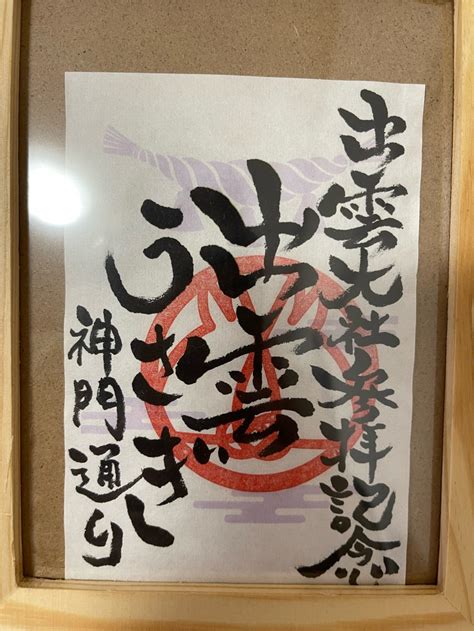 出雲大社参拝記念
出雲
うさぎ
神門通り